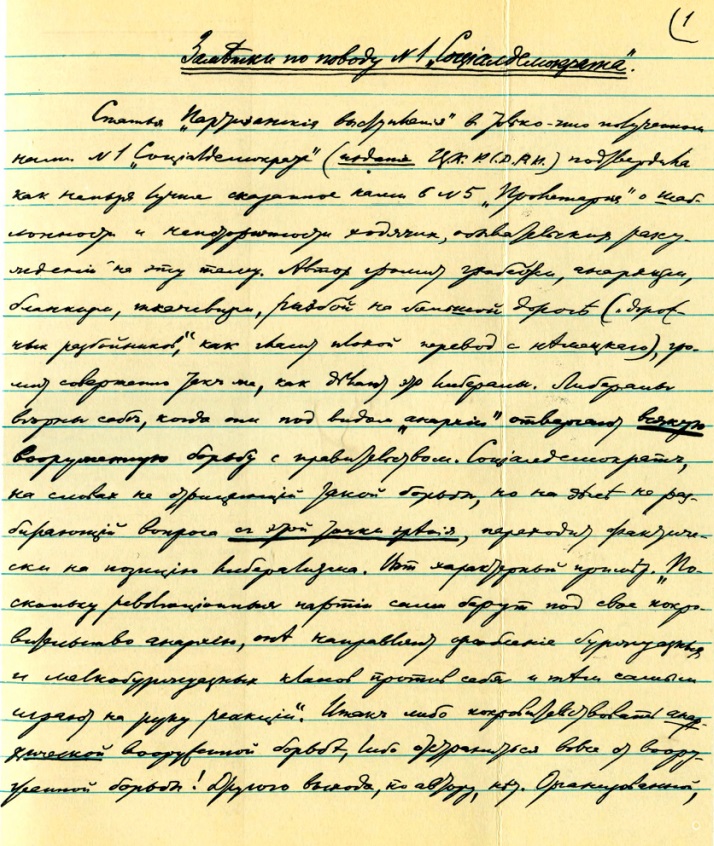 (1
Замѣтки по поводу № 1 „Соціалдемократа".
Статья „Партизанскія выступленія" в только-что полученном
нами № 1 „Соціалдемократа" (изданія Ц.К.Р.С.Д.Р.П.) подтвердила
как нельзя лучше сказанное нами в № 5 „Пролетарія" о шаб-
лонности и неисторичности ходячих, обывательских разсу-
жденій на эту тему. Автор громит грабежи, анархизм,
бланкизм, ткачевизм, разбой на большой дорогѣ („дорож-
ных разбойников," как гласит плохой перевод с нѣмецкаго), гро-
мит совершенно так же, как дѣлают это либералы. Либералы
вѣрны себѣ, когда они под видом „анархіи" отвергают всякую
вооруженную борьбу с правительством. Соціалдемократъ,
на словах не отрицающій такой борьбы, но на дѣлѣ не раз-
бирающій вопроса с этой точки зрѣнія, переходит фактиче-
ски на позицію либерализма. Вот характерный примѣр. „По-
скольку революціонныя партіи сами берут под свое покро-
вительство анархію, онѣ направляют озлобленіе буржуазных
и мелкобуржуазных классов против себя и тѣм самым
играют на руку реакціи". Итакъ либо покровительствовать анар-
хической вооруженной борьбѣ, либо отстраниться вовсе от воору-
женной борьбы! Другого выхода, по автору, нѣт. Организованной,